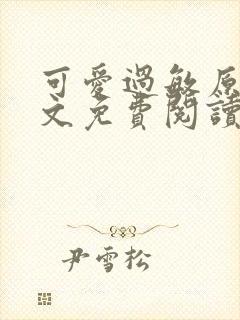 可愛過敏原
文免費閱讀
尹雪松